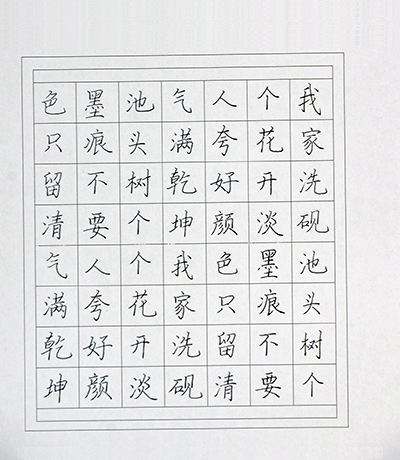 我家洗砚池头树个
个花开淡墨痕不要
人夸好颜色只留清
气满乾坤我家洗砚
池头树个个花开淡
墨痕不要人夸好颜
色只留清气满乾坤